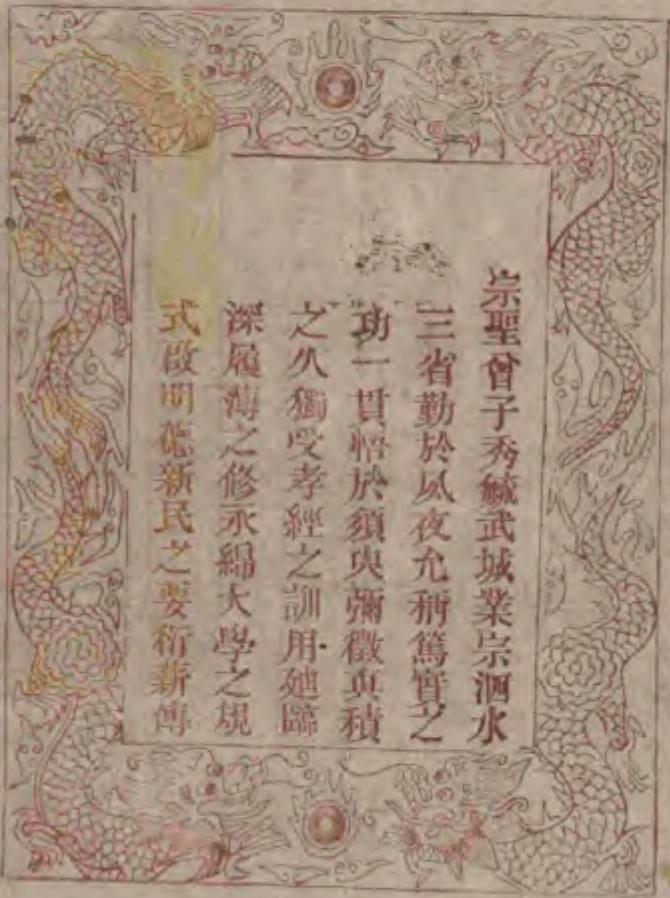 宗聖曾子秀毓武城業宗泗水
三省勤於夙夜允稱篤實之
功一貫悟於須臾彌徵真積
之久獨受孝經之訓用廸臨
深履薄之修永綿大學之規
式啟明德新民之要衍薪傳